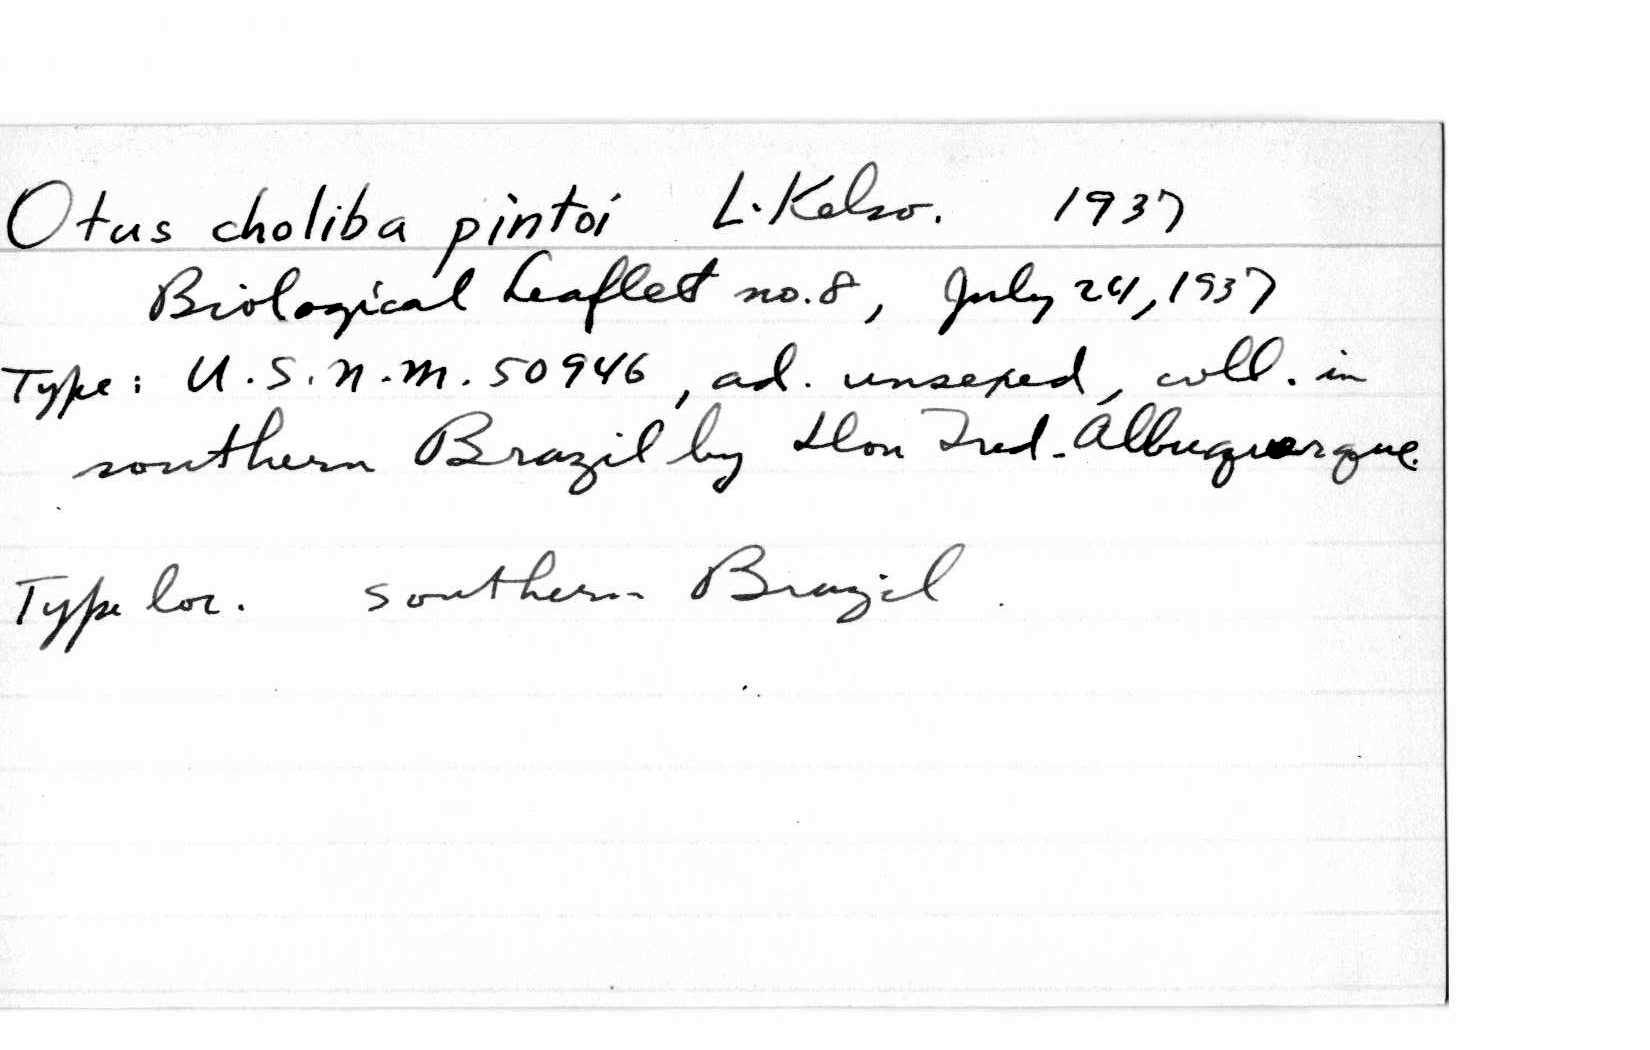 Otus choliba pintoi L. Kelso. 1937
Biological Leaflet no. 8, July 24, 1937
Type: U.S.N.M. 50946, ad. unsexed, coll. in
southern Brazil by Don Fred. Albuquerque.
Type loc. southern Brazil.